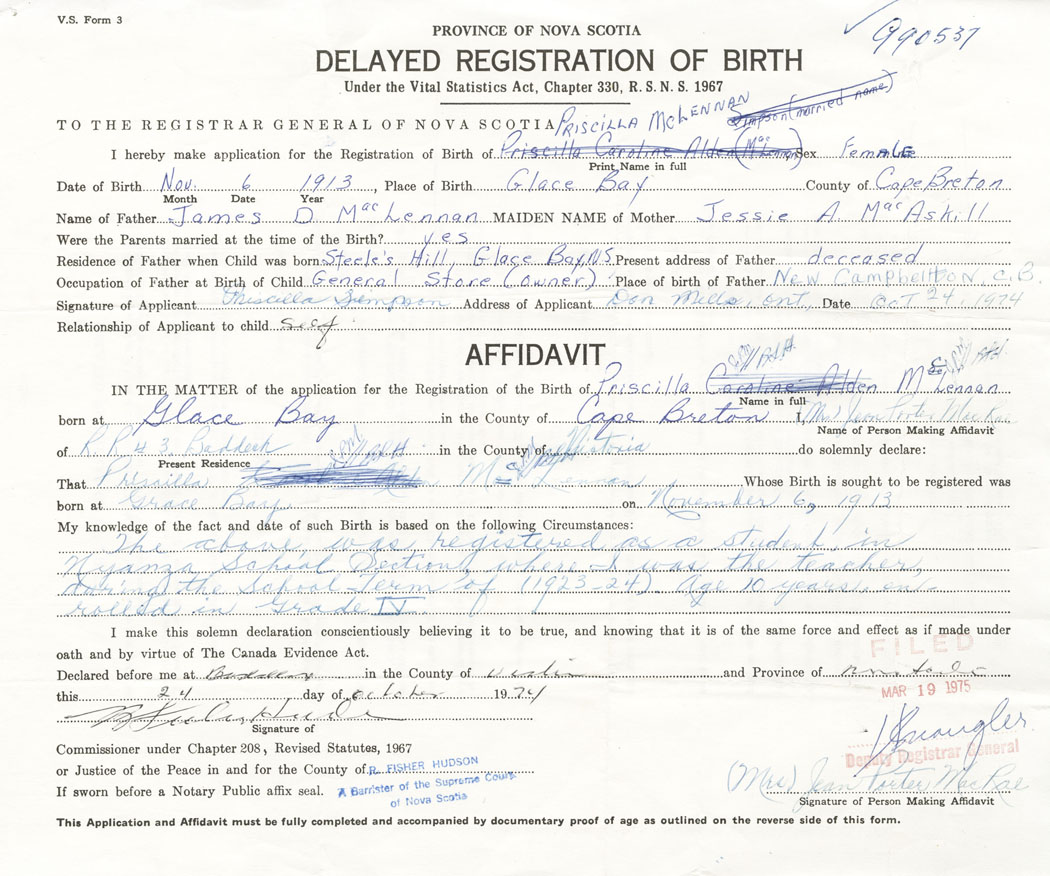 V.S. Form 3
PROVINCE OF NOVA SCOTIA
990537
DELAYED REGISTRATION OF BIRTH
Under the Vital Statistics Act, Chapter 330, R.S.N.S. 1967
Simpson (married name)
TO THE REGISTRAR GENERAL OF NOVA SCOTIA PRISCILLA McLENNAN
I hereby make application for the Registration of Birth of Priscilla Caroline Alden (MacLennan) Sex Female
Print Name in full
Date of Birth Nov. 6 1913, Place of Birth Glace Bay County of Cape Breton
Month Date Year
Name of Father James D MacLennan MAIDEN NAME of Mother Jessie A MacAskill
Were the Parents married at the time of the Birth? yes
Residence of Father when Child was born Steele's Hill, Glace Bay, N.S. Present address of Father deceased
Occupation of Father at Birth of Child General Store (owner) Place of birth of Father New Campbellton, C.B.
Signature of Applicant Priscilla Simpson Address of Applicant Don Mills, Ont, Date OCT 24, 1974
Relationship of Applicant to child self
AFFIDAVIT
IN THE MATTER of the application for the Registration of the Birth of Priscilla Caroline Alden McLennan
Name in full
born at Glace Bay in the County of Cape Breton I, Mrs) Jean Porter MacRae
Name of Person Making Affidavit
of R.R # 3. Baddeck in the County of Victoria do solemnly declare:
Present Residence
That Priscilla McLennan Whose Birth is sought to be registered was
born at Grace Bay on November 6, 1913
My knowledge of the fact and date of such Birth is based on the following Circumstances:
The above, was registered as a student, in
Nyanza School Section, where I was the teacher,
during the School Term of (1923-24) Age 10 years, en-
rolled in Grade IV
I make this solemn declaration conscientiously believing it to be true, and knowing that it is of the same force and effect as if made under
oath and by virtue of The Canada Evidence Act.
FILED
Declared before me at Baddeck in the County of Victoria and Province of
this 24 day of october 1974
MAR 19 1975
Signature of
Commissioner under Chapter 208, Revised Statutes, 1967
Deputy Registrar General
or Justice of the Peace in and for the County of R. FISHER HUDSON
If sworn before a Notary Public affix seal. A Barrister of the Supreme Court
of Nova Scotia
(Mrs) Jean Porter MacRae
Signature of Person Making Affidavit
This Application and Affidavit must be fully completed and accompanied by documentary proof of age as outlined on the reverse side of this form.